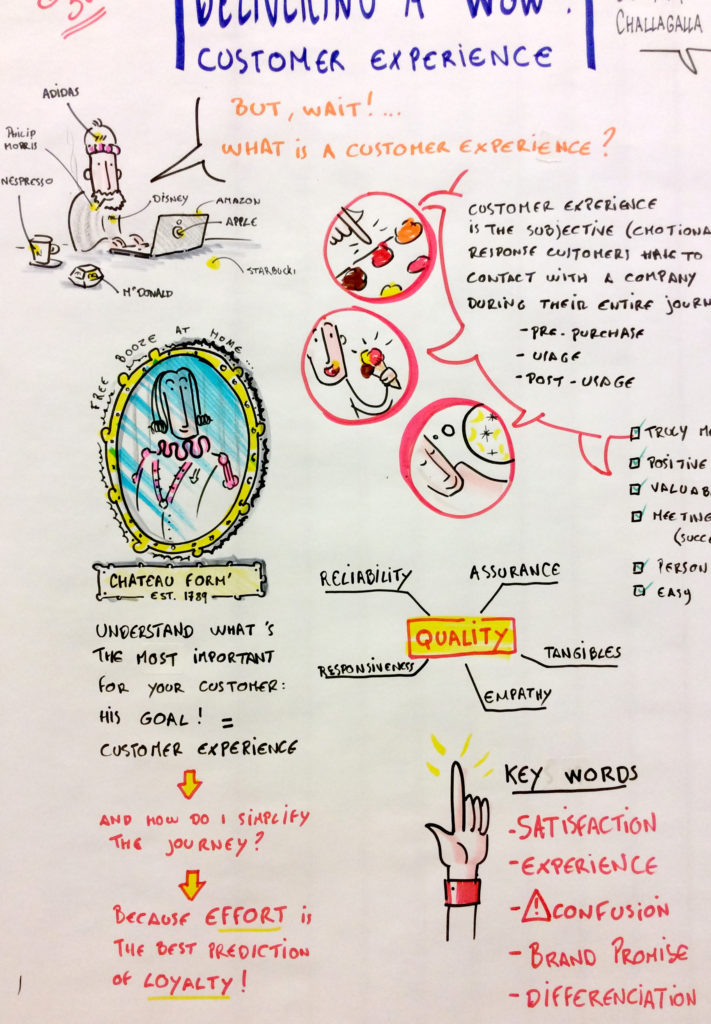 DELIVERING A WOW!
CUSTOMER EXPERIENCE
CHALLAGALLA
BUT, WAIT!...
WHAT IS A CUSTOMER EXPERIENCE?
ADIDAS
PHILIP
MORRIS
NESPRESSO
DISNEY
AMAZON
APPLE
STARBUCKS
McDONALD
CUSTOMER EXPERIENCE
IS THE SUBJECTIVE (EMOTIONA
RESPONSE CUSTOMERS HAVE TO
CONTACT WITH A COMPANY
DURING THEIR ENTIRE JOURN
- PRE-PURCHASE
- USAGE
- POST-USAGE
TRULY
POSITIVE
VALUAB
MEETING
(SUCC
PERSON
EASY
FREE BOOZE AT HOME...
CHATEAU FORM'
EST. 1789
UNDERSTAND WHAT'S
THE MOST IMPORTANT
FOR YOUR CUSTOMER:
HIS GOAL! =
CUSTOMER EXPERIENCE
AND HOW DO I SIMPLIFY
THE JOURNEY?
BECAUSE EFFORT IS
THE BEST PREDICTION
OF LOYALTY!
RELIABILITY
ASSURANCE
QUALITY
RESPONSIVENESS
TANGIBLES
EMPATHY
KEY WORDS
- SATISFACTION
- EXPERIENCE
- CONFUSION
- BRAND PROMISE
- DIFFERENCIATION